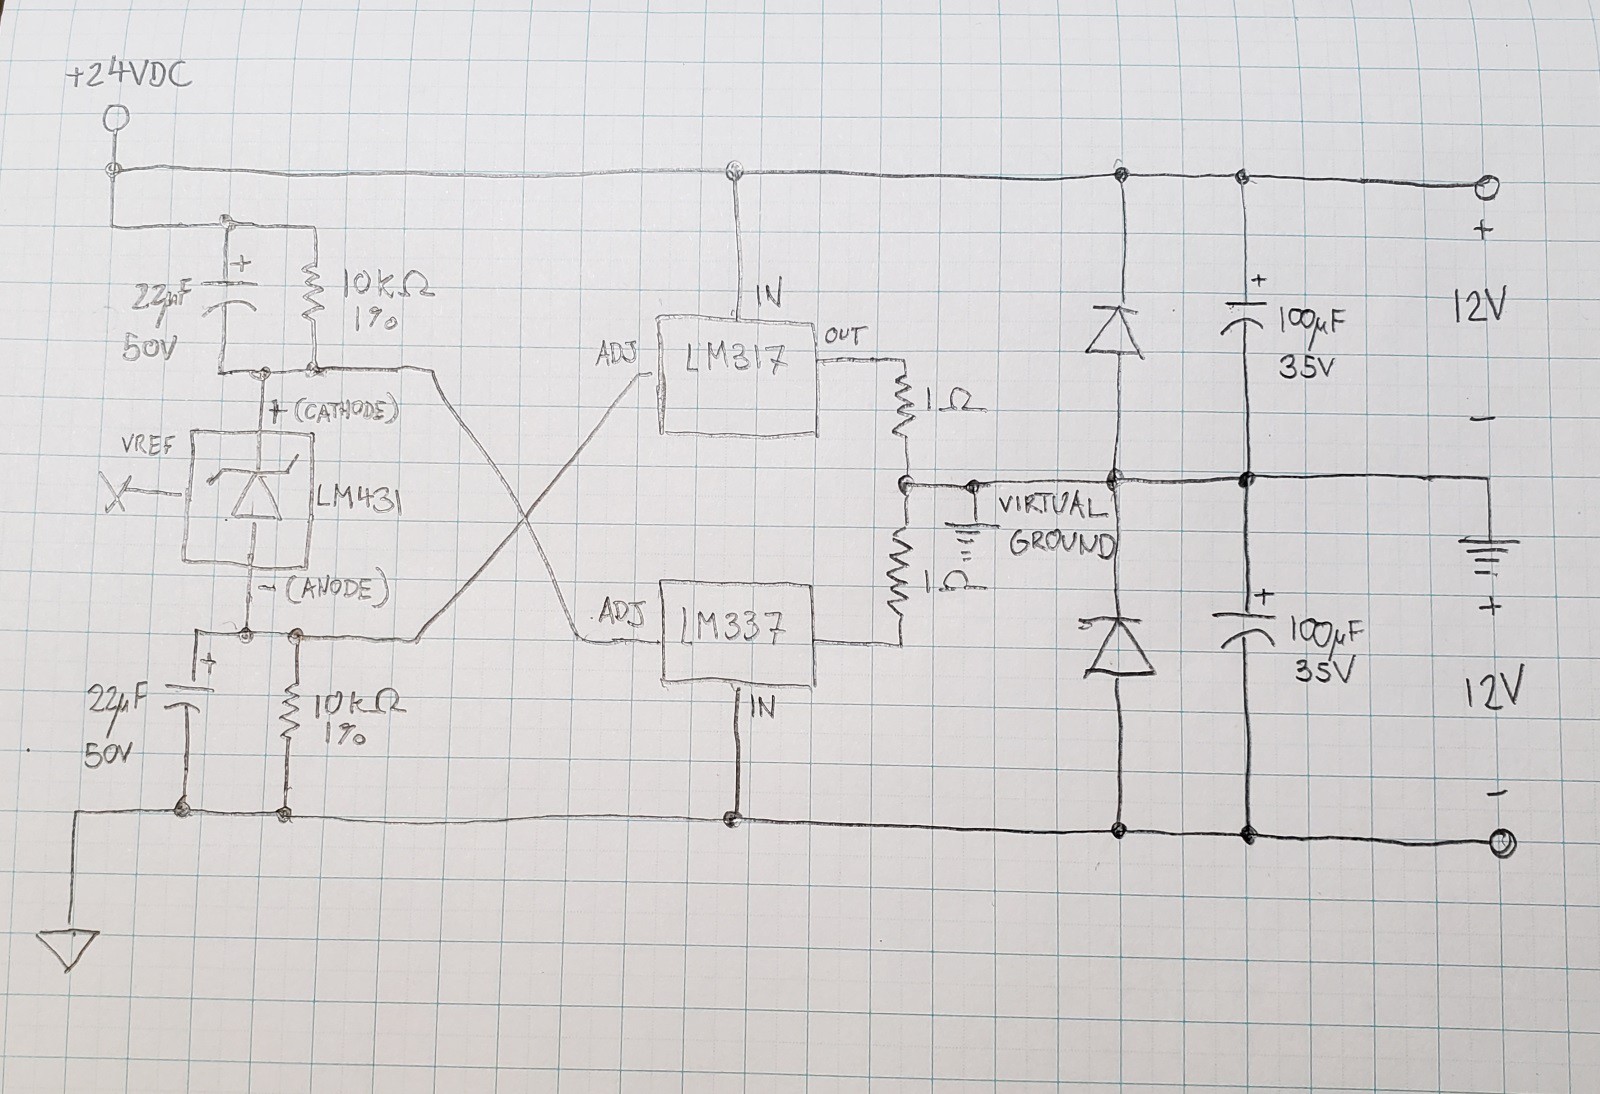 +24VDC
+
22µF
50V
10kΩ
1%
+ (CATHODE)
VREF
LM431
- (ANODE)
+
22µF
50V
10kΩ
1%
IN
ADJ
LM317
OUT
1Ω
VIRTUAL
GROUND
1Ω
ADJ
LM337
IN
+
100µF
35V
+
12V
-
+
100µF
35V
+
12V
-